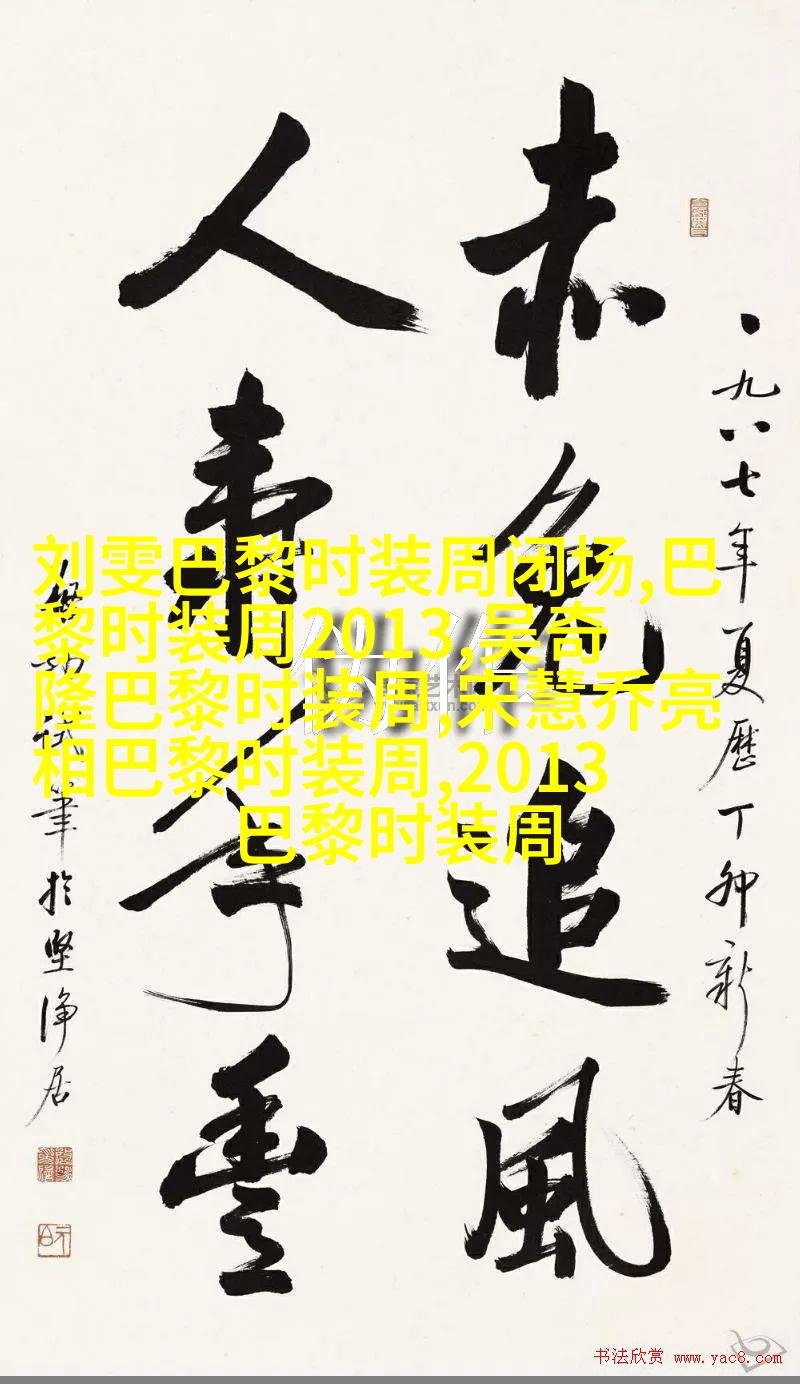 一九八七年夏歷丁卯新春
赤兔追風
人壽年豐
啓功試筆於堅淨居
刘雯巴黎时装周闭场,巴
黎时装周2013,吴奇
隆巴黎时装周,宋慧乔亮
相巴黎时装周,2013
巴黎时装周
书法欣赏 www.yac8.com